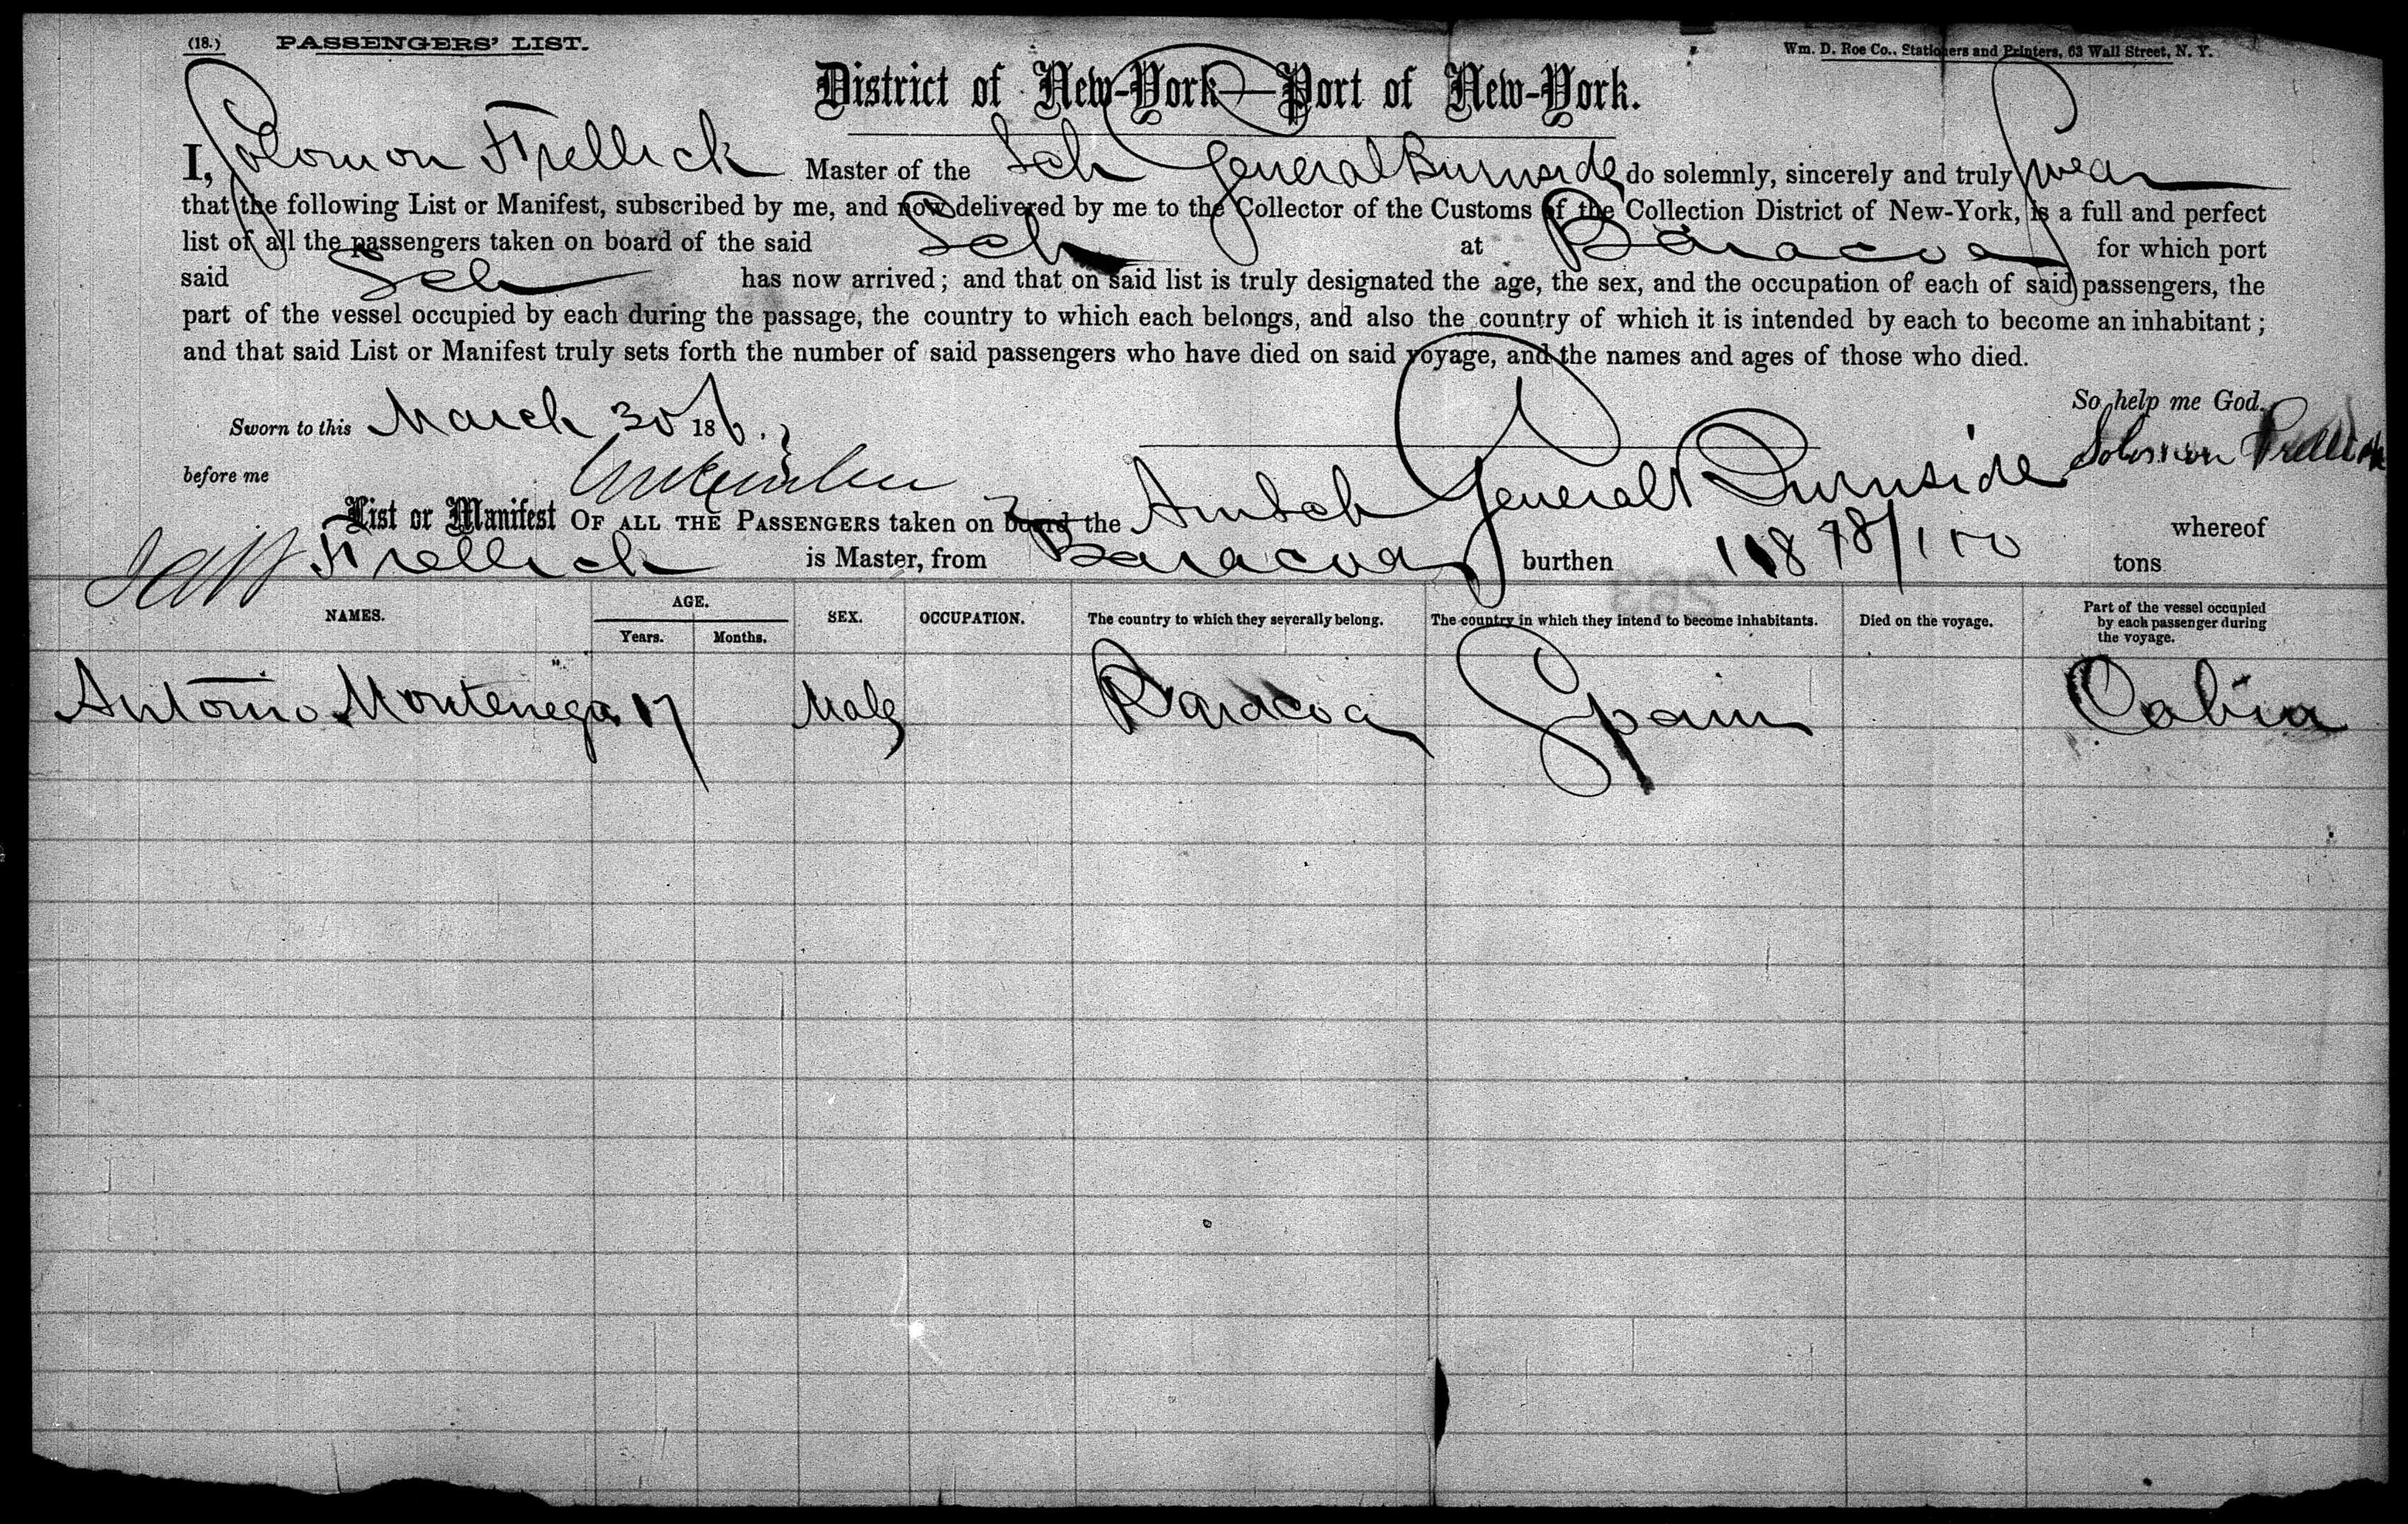 (18.) PASSENGERS' LIST. Wm. D. Roe Co., Stationers and Printers, 63 Wall Street, N. Y.
District of New-York—Port of New-York.
I, Solomon Frellick Master of the Sch General Burnside do solemnly, sincerely and truly swear
that the following List or Manifest, subscribed by me, and now delivered by me to the Collector of the Customs of the Collection District of New-York, is a full and perfect
list of all the passengers taken on board of the said Sch at Baracoa for which port
said Sch has now arrived; and that on said list is truly designated the age, the sex, and the occupation of each of said passengers, the
part of the vessel occupied by each during the passage, the country to which each belongs, and also the country of which it is intended by each to become an inhabitant;
and that said List or Manifest truly sets forth the number of said passengers who have died on said voyage, and the names and ages of those who died.
So help me God.
Sworn to this March 30 18
before me Solomon Frellick
List or Manifest OF ALL THE PASSENGERS taken on board the Am Sch General Burnside whereof
Frellick is Master, from Baracoa burthen 118 78/100 tons
NAMES. AGE. Years. Months. SEX. OCCUPATION. The country to which they severally belong. The country in which they intend to become inhabitants. Died on the voyage. Part of the vessel occupied by each passenger during the voyage.
Antonio Montenega 17 Male Baracoa Spain Cabin